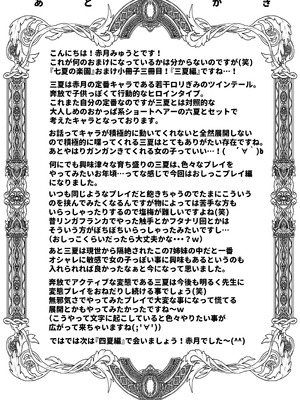 あとがき
こんにちは！赤月みゅうとです！
これが何のおまけになっているかは分からないのですが(笑)
『七夏の楽園』おまけ小冊子三冊目！『三夏編』ですね…！
三夏は赤月の定番キャラである若干ロリぎみのツインテール。
奔放で子供っぽくて行動的なヒロインタイプ。
これまた自分の定番なのですが三夏とは対照的な
大人しめのおかっぱ系ショートヘアーの六夏とセットで
考えたキャラとなっております。
お話ってキャラが積極的に動いてくれないと全然展開しない
ので積極的に喋ってくれる三夏はとてもありがたい存在ですね。
あとやはりガンガンきてくれる女の子っていい…！(　゜∀゜)b
何にでも興味津々な育ち盛りの三夏は、色々なプレイを
やってみたいお年頃…ってな感じで今回はおしっこプレイ編
になりました。
いつも同じようなプレイだと飽きちゃうのでたまにこういう
のを挟んでみたくなるんですが物によっては苦手な方も
いらっしゃったりするので塩梅が難しいですよね(笑)
昔リンガフランカでやった触手とかフタナリ回とかは
そういう方がぼちぼちいらっしゃったみたいですし…
(おしっこくらいだったら大丈夫かな・・・？w)
あと三夏は現世から隔絶されたこの7姉妹の中だと一番
オシャレに敏感で女の子っぽい事に興味もあるというのも
入れられれば良かったなぁと今になって思いました。
奔放でアクティブな変態である三夏は今後も明るく先生に
変態プレイをおねだりし続ける事でしょう(笑)
無邪気さでやってみたプレイで大変な事になって慌てる
展開とかもやってみたかったですね～w
(こうやって文字に起こしていると色々やりたい事が
広がって来ちゃいますね(;'∀'))
ではでは次は『四夏編』で会いましょう！赤月でした～(^^)